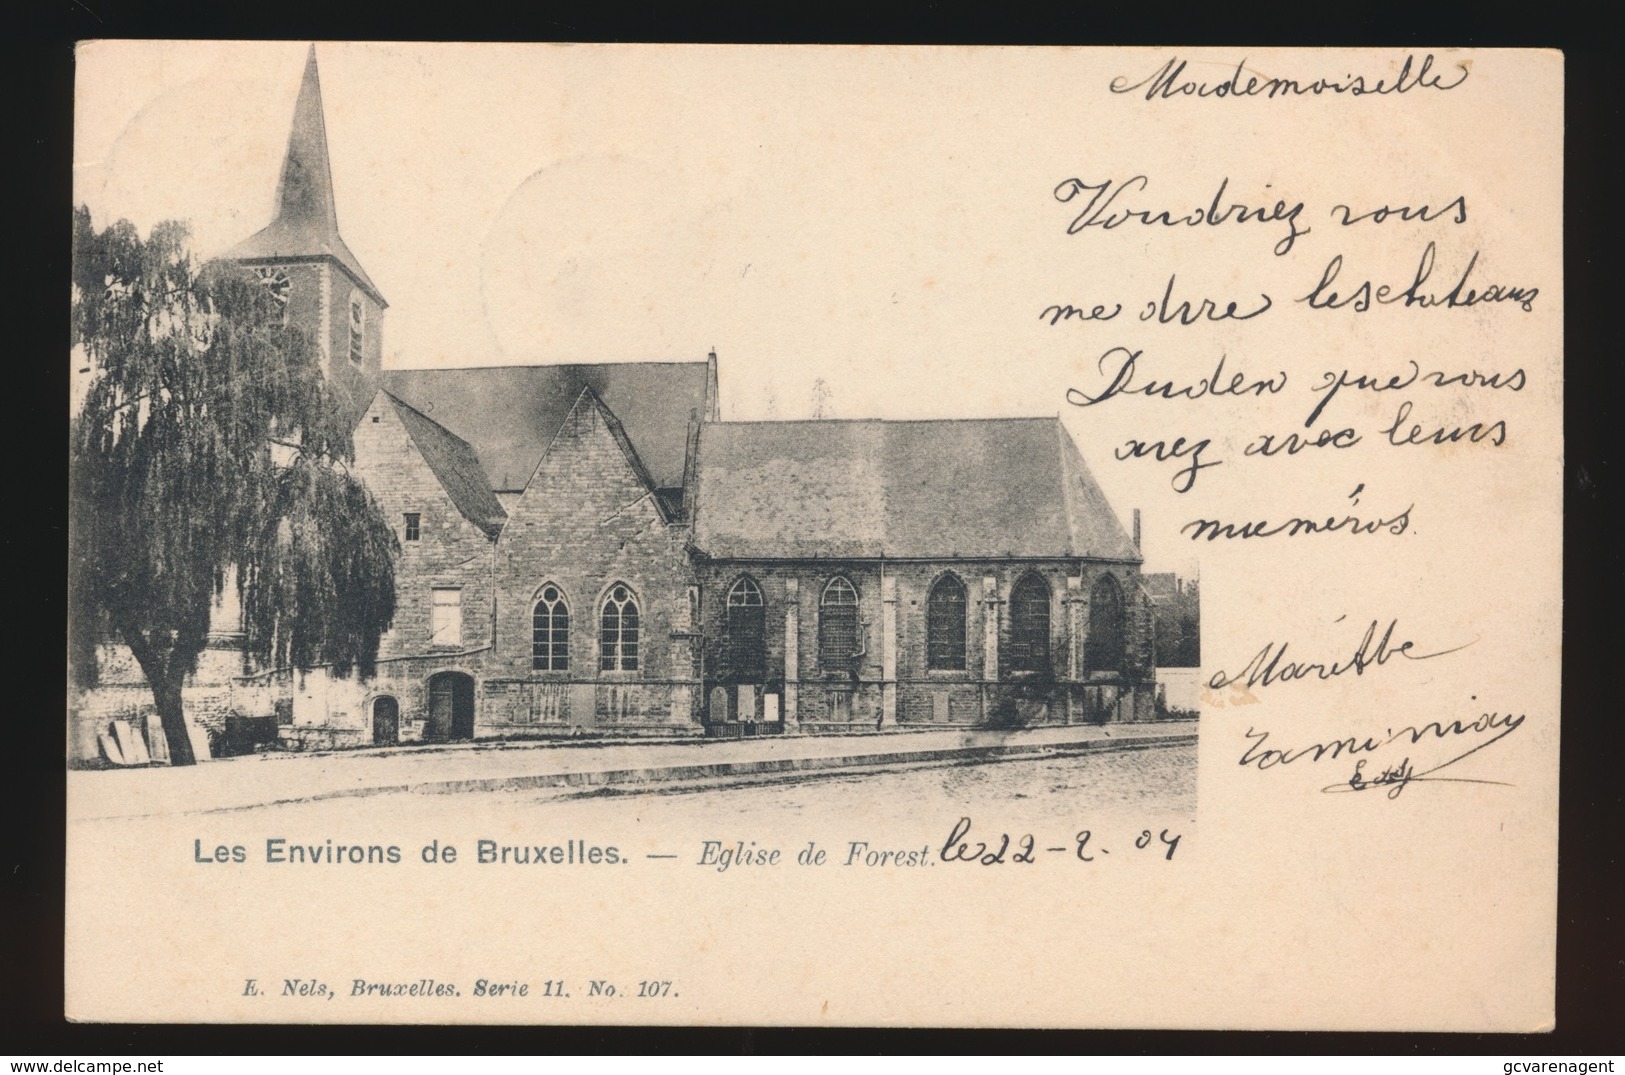 Mademoiselle
Voudriez vous
me dire les chateaux
Duden que vous
avez avec leurs
numéros.
Taminiau
Les Environs de Bruxelles. — Eglise de Forest. le 22-2.04
E. Nels, Bruxelles. Serie 11. No. 107.
https://www.delcampe.net
gcvarenagent